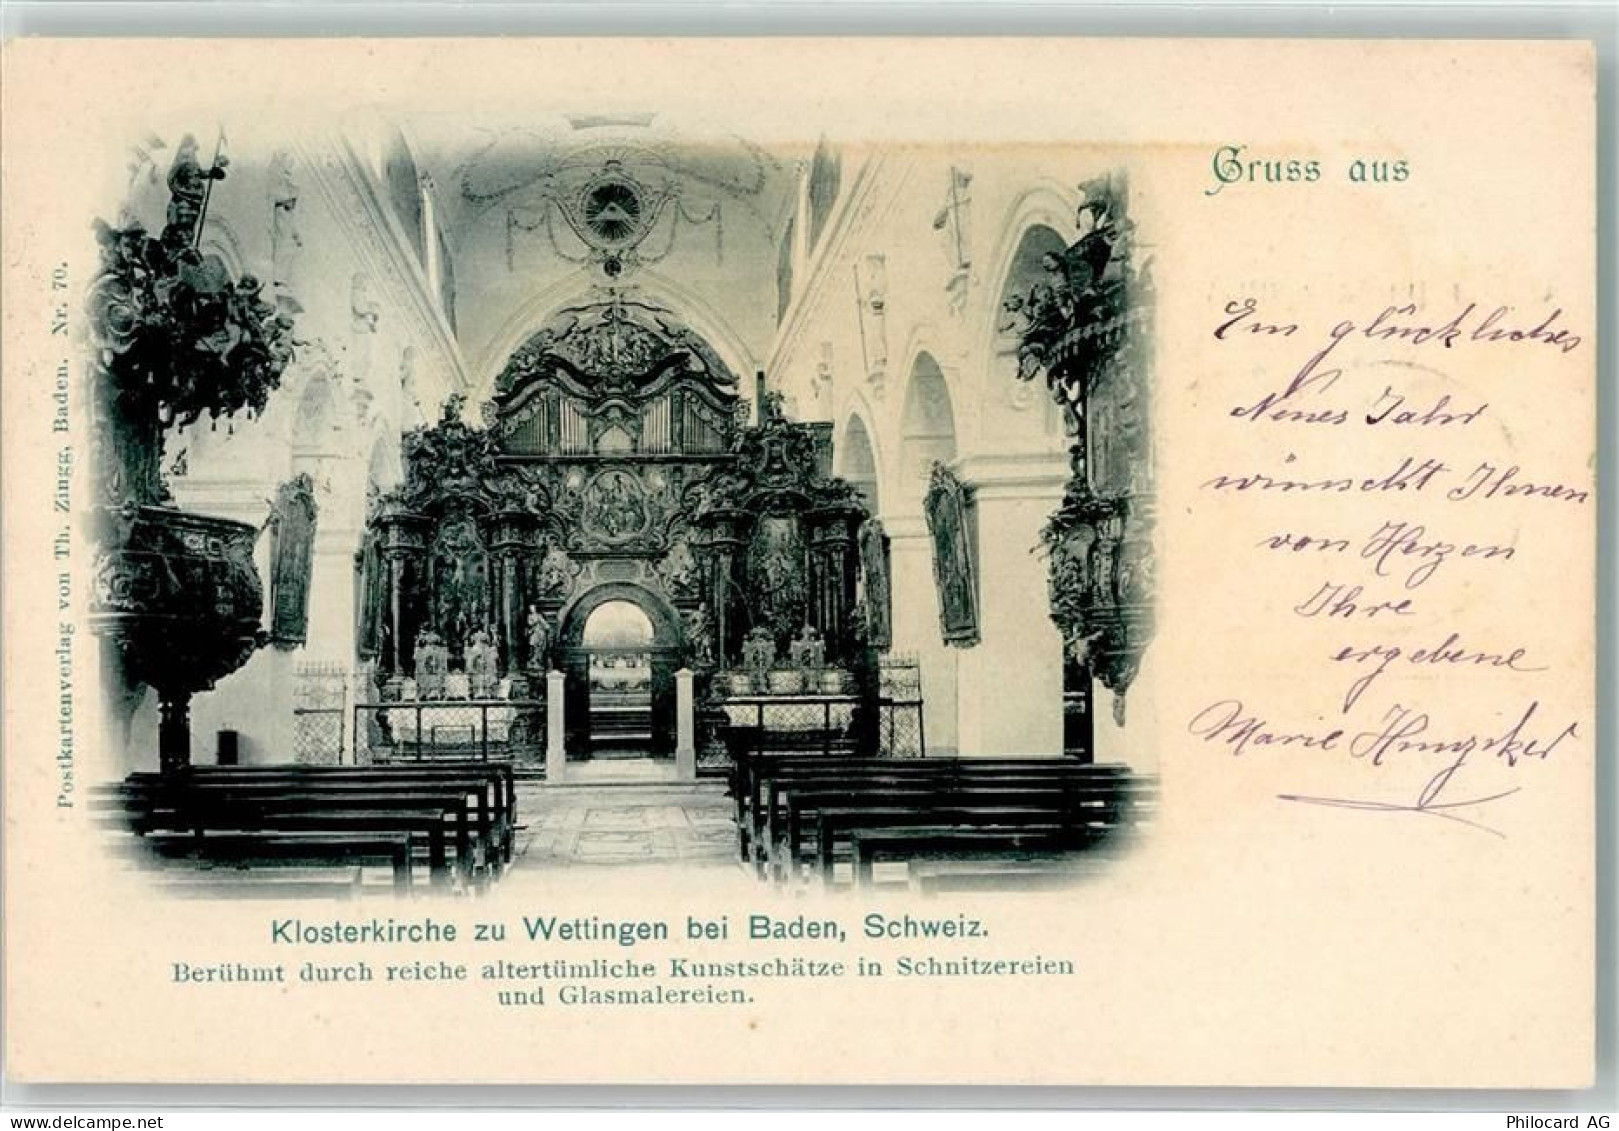 Gruss aus
Ein glückliches
Neues Jahr
wünscht Ihnen
von Herzen
Ihre
ergebene
Marie Hunziker
Postkartenverlag von Th. Zingg, Baden. Nr. 70.
Klosterkirche zu Wettingen bei Baden, Schweiz.
Berühmt durch reiche altertümliche Kunstschätze in Schnitzereien
und Glasmalereien.
Philocard AG